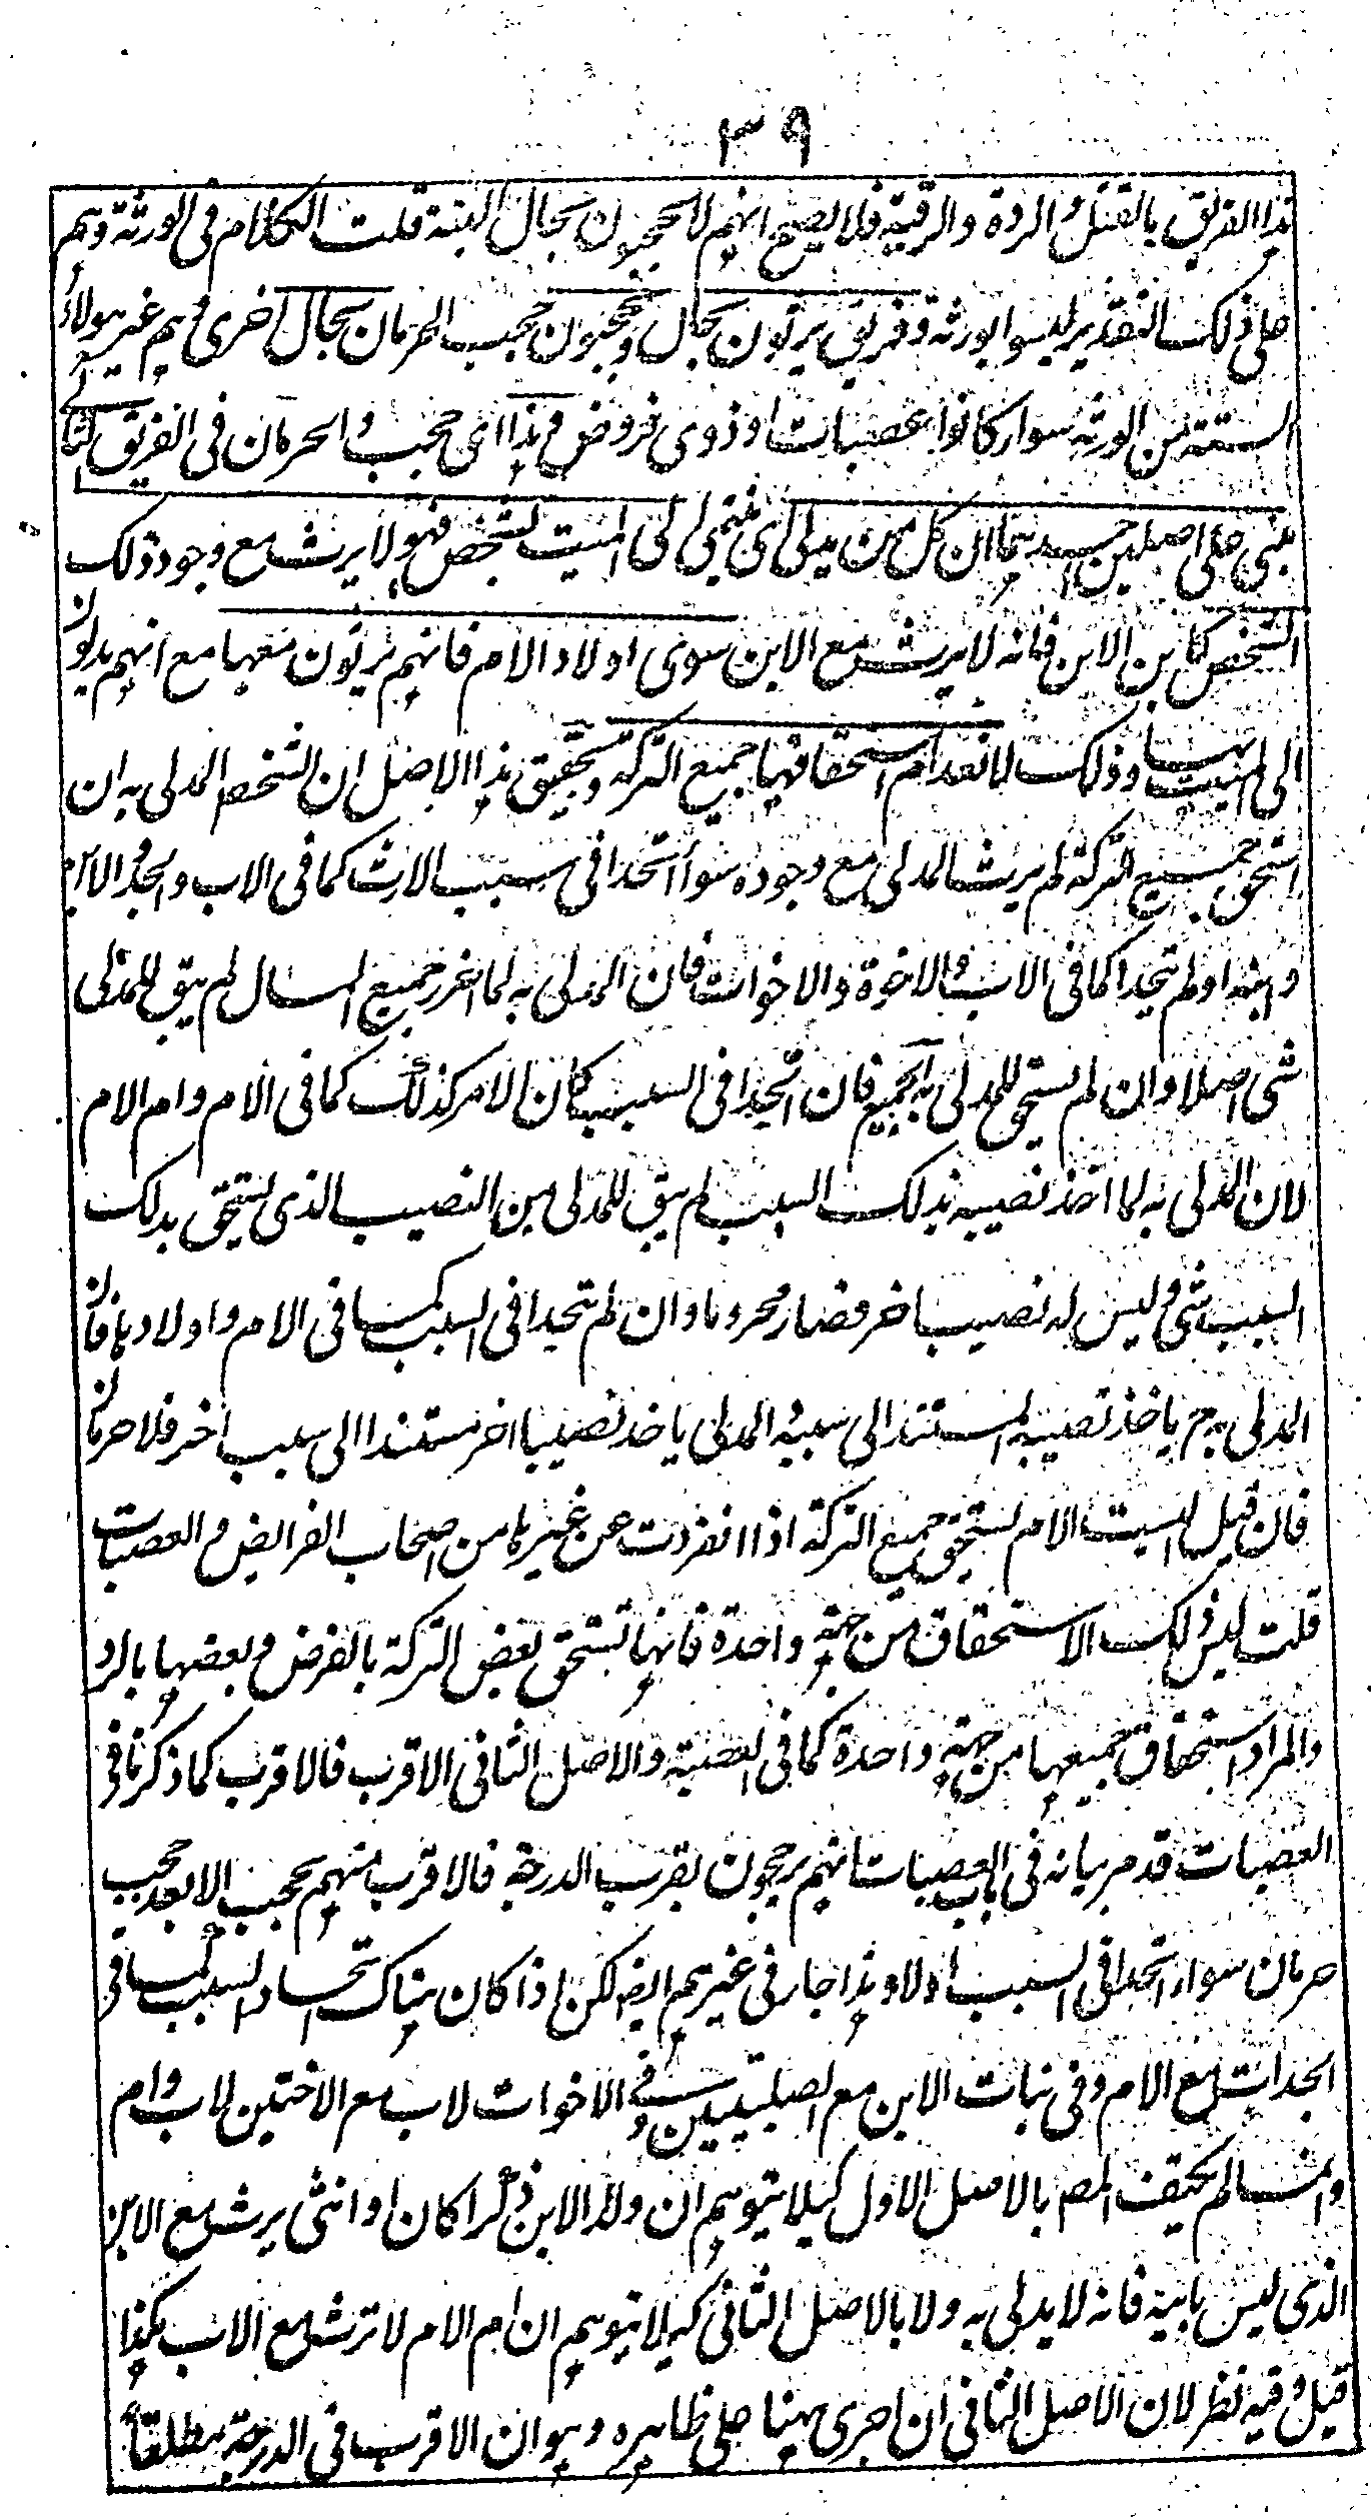 ٣٩
هذا الفريق بالقتل والردة والرقية فلا يصح انهم لا يحجبون بحال البتة قلت الكلام فى الورثة وهم
على ذلك التقدير ليسوا بورثة وفريق يرثون بحال ويحجبون حجب الحرمان بحال اخرى وهم غير هولاء
الستة من الورثة سواء كانوا عصبات او ذوى فروض وهذا اى حجب الحرمان فى الفريق الثانى
مبنى على اصلين احدهما ان كل من يدلى اى ينتمى الى الميت بشخص فهو لا يرث مع وجود ذلك
الشخص كابن الابن فانه لا يرث مع الابن سوى اولاد الام فانهم يرثون معها مع انهم يدلون
الى الميت بها وذلك لانعدام استحقاقها جميع التركة وتحقيق هذا الاصل ان الشخص المدلى به ان
استحق جميع التركة لم يرث المدلى مع وجوده سواء اتحدا فى سبب الارث كما فى الاب والجد والابن
وابنه او لم يتحدا كما فى الاب والاخوة والاخوات فان المدلى به لما احرز جميع المال لم يبق للمدلى
شى اصلا وان لم يستحق المدلى به الجميع فان اتحدا فى السبب كان الامر كذلك كما فى الام وام الام
لان المدلى به لما اخذ نصيبه بذلك السبب لم يبق للمدلى من النصيب الذى يستحق بذلك
السبب شى وليس له نصيب اخر فصار محروما وان لم يتحدا فى السبب كما فى الام واولادها فان
المدلى به ح ياخذ نصيبه المستند الى سببه والمدلى ياخذ نصيبا اخر مستندا الى سبب اخر فلا حرمان
فان قيل اليست الام تستحق جميع التركة اذا انفردت عن غيرها من اصحاب الفرايض والعصبات
قلت ليس ذلك الاستحقاق من جهة واحدة فانها تستحق بعض التركة بالفرض وبعضها بالرد
والمراد استحقاق جميعها من جهة واحدة كما فى العصبة والاصل الثانى الاقرب فالاقرب كما ذكرنا فى
العصبات قد مر بيانه فى باب العصبات انهم يرجحون بقرب الدرجة فالاقرب منهم يحجب الابعد حجب
حرمان سواء اتحدا فى السبب او لا وهذا جار فى غيرهم ايضا لكن اذا كان هناك اتحاد السبب كما فى
الجدات مع الام وفى بنات الابن مع الصلبيتين وفى الاخوات لاب مع الاختين لاب وام
وانما لم يكتف المص بالاصل الاول كيلا يتوهم ان ولد الابن ذكرا كان او انثى يرث مع الابن
الذى ليس بابيه فانه لا يدلى به ولا بالاصل الثانى كيلا يتوهم ان ام الام لا ترث مع الاب هكذا
قيل وفيه نظر لان الاصل الثانى ان اجرى ههنا على ظاهره وهو ان الاقرب فى الدرجة مطلقاً